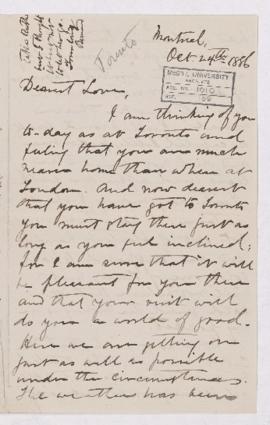 Toronto
Montreal,
Oct 24th 1886
McGILL UNIVERSITY
ARCHIVES
ACC. NO. 1010
REF.
Dearest Love,
I am thinking of you
to-day as at Toronto and
feeling that you are much
nearer home than when at
London. And now dearest
that you have got to Toronto
you must stay there just as
long as you feel inclined;
for I am sure that it will
be pleasant for you there
and that your visit will
do you a world of good.
Here we are getting on
just as well as possible
under the circumstances.
The weather has been